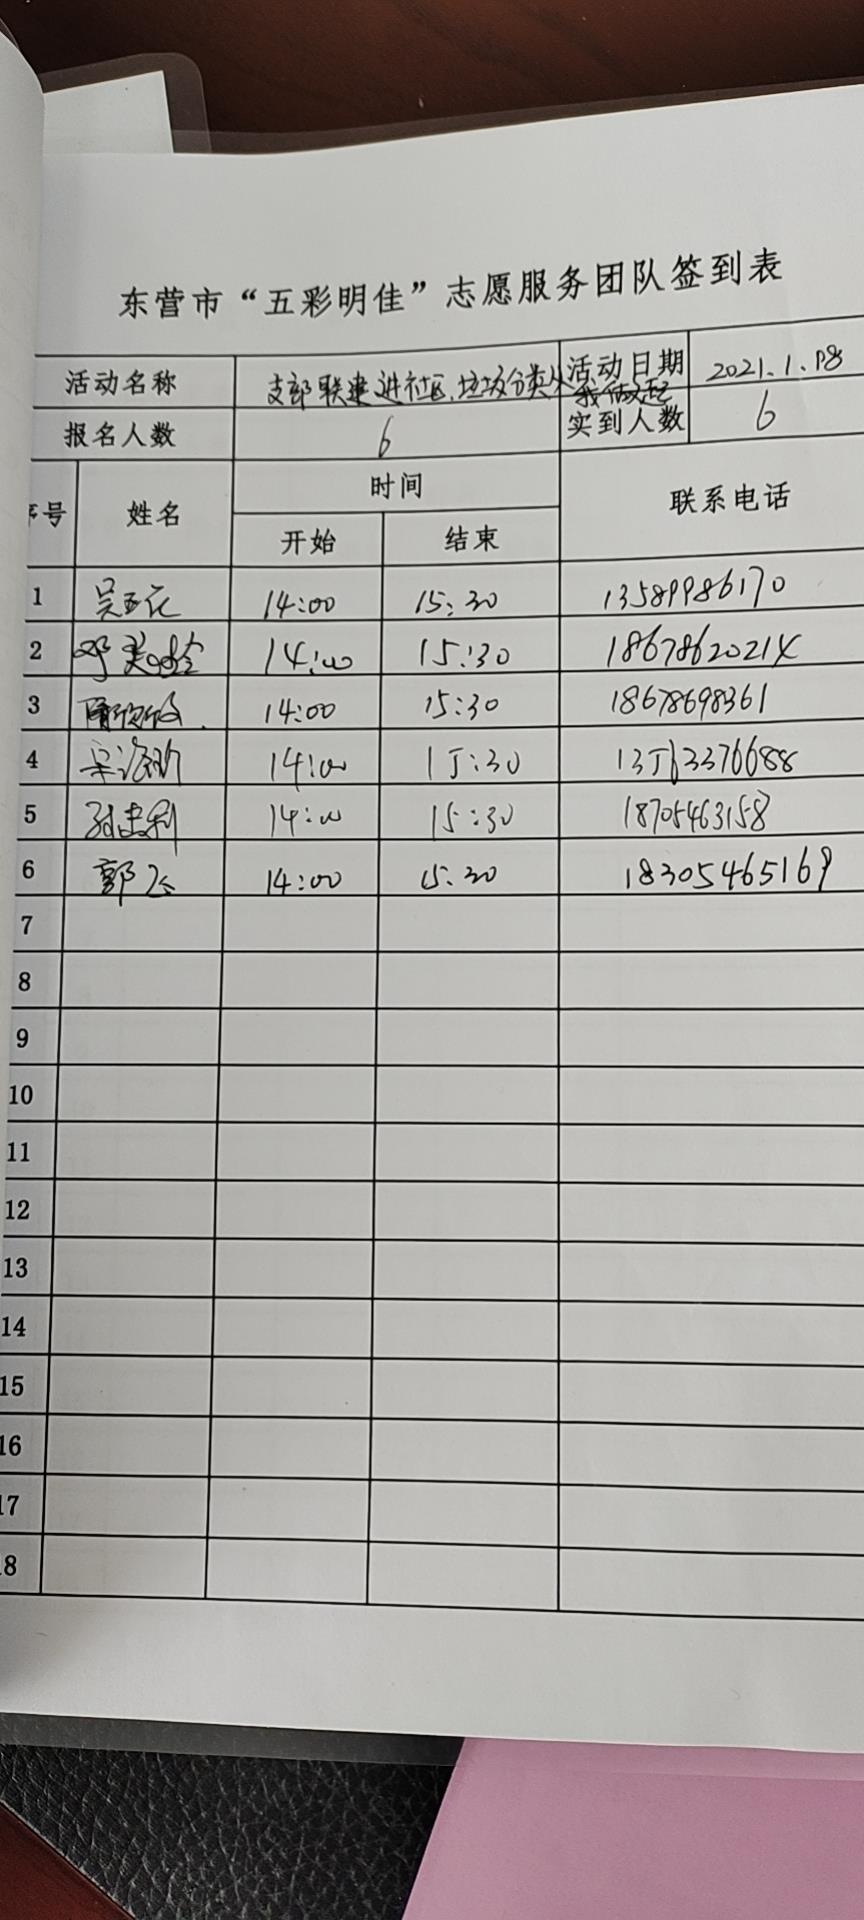 东营市“五彩明佳”志愿服务团队签到表
活动名称 支部联建进社区、垃圾分类从我做起 活动日期 2021.1.18
报名人数 6 实到人数 6
序号 姓名 时间 联系电话
开始 结束
1 14:00 15:30 13589986170
2 邓美玲 14:00 15:30 1867862021X
3 14:00 15:30 18678698361
4 14:00 15:30 13563376688
5 孙志利 14:00 15:30 18705463158
6 郭飞 14:00 15:30 18305465169
7
8
9
10
11
12
13
14
15
16
17
18